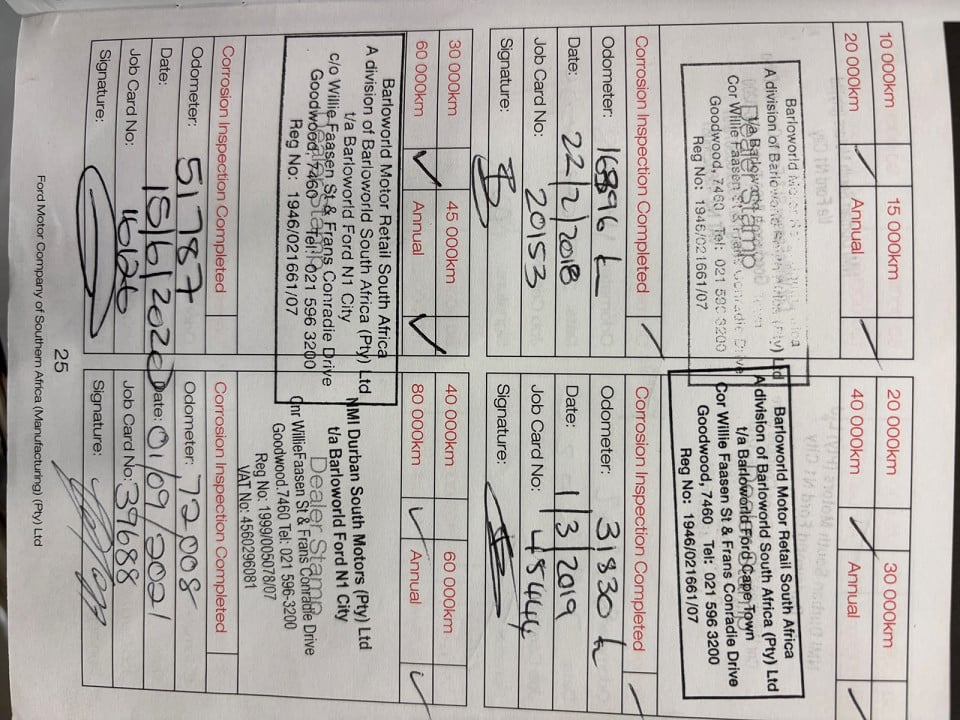 10 000km 15 000km
20 000km ✓ Annual ✓
Barloworld Motor Retail South Africa
A division of Barloworld South Africa (Pty) Ltd
t/a Barloworld
Dealer Stamp
Cor Willie Faasen St & Frans Conradie Drive
Goodwood, 7460 Tel: 021 596 3200
Reg No: 1946/021661/07
Corrosion Inspection Completed ✓
Odometer: 16896 k
Date: 22/2/2018
Job Card No: 20153
Signature:
20 000km 30 000km
40 000km ✓ Annual ✓
Barloworld Motor Retail South Africa
A division of Barloworld South Africa (Pty) Ltd
t/a Barloworld Ford Cape Town
Cor Willie Faasen St & Frans Conradie Drive
Goodwood, 7460 Tel: 021 596 3200
Reg No: 1946/021661/07
Corrosion Inspection Completed ✓
Odometer: 31830 k
Date: 1/3/2019
Job Card No: 48444
Signature:
30 000km 45 000km
60 000km ✓ Annual ✓
Barloworld Motor Retail South Africa
A division of Barloworld South Africa (Pty) Ltd
t/a Barloworld Ford N1 City
c/o Willie Faasen St & Frans Conradie Drive
Dealer Stamp
Goodwood, 7460 Tel: 021 596 3200
Reg No: 1946/021661/07
Corrosion Inspection Completed
Odometer: 51787
Date: 15/6/2020
Job Card No: 16126
Signature:
40 000km 60 000km
80 000km ✓ Annual ✓
NMI Durban South Motors (Pty) Ltd
t/a Barloworld Ford N1 City
Dealer Stamp
Cnr WillieFaasen St & Frans Conradie Drive
Goodwood.7460 Tel: 021 596-3200
Reg No: 1999/005078/07
VAT No: 4560296081
Corrosion Inspection Completed
Odometer: 72008
Date: 01/09/2021
Job Card No: 39688
Signature:
25
Ford Motor Company of Southern Africa (Manufacturing) (Pty) Ltd